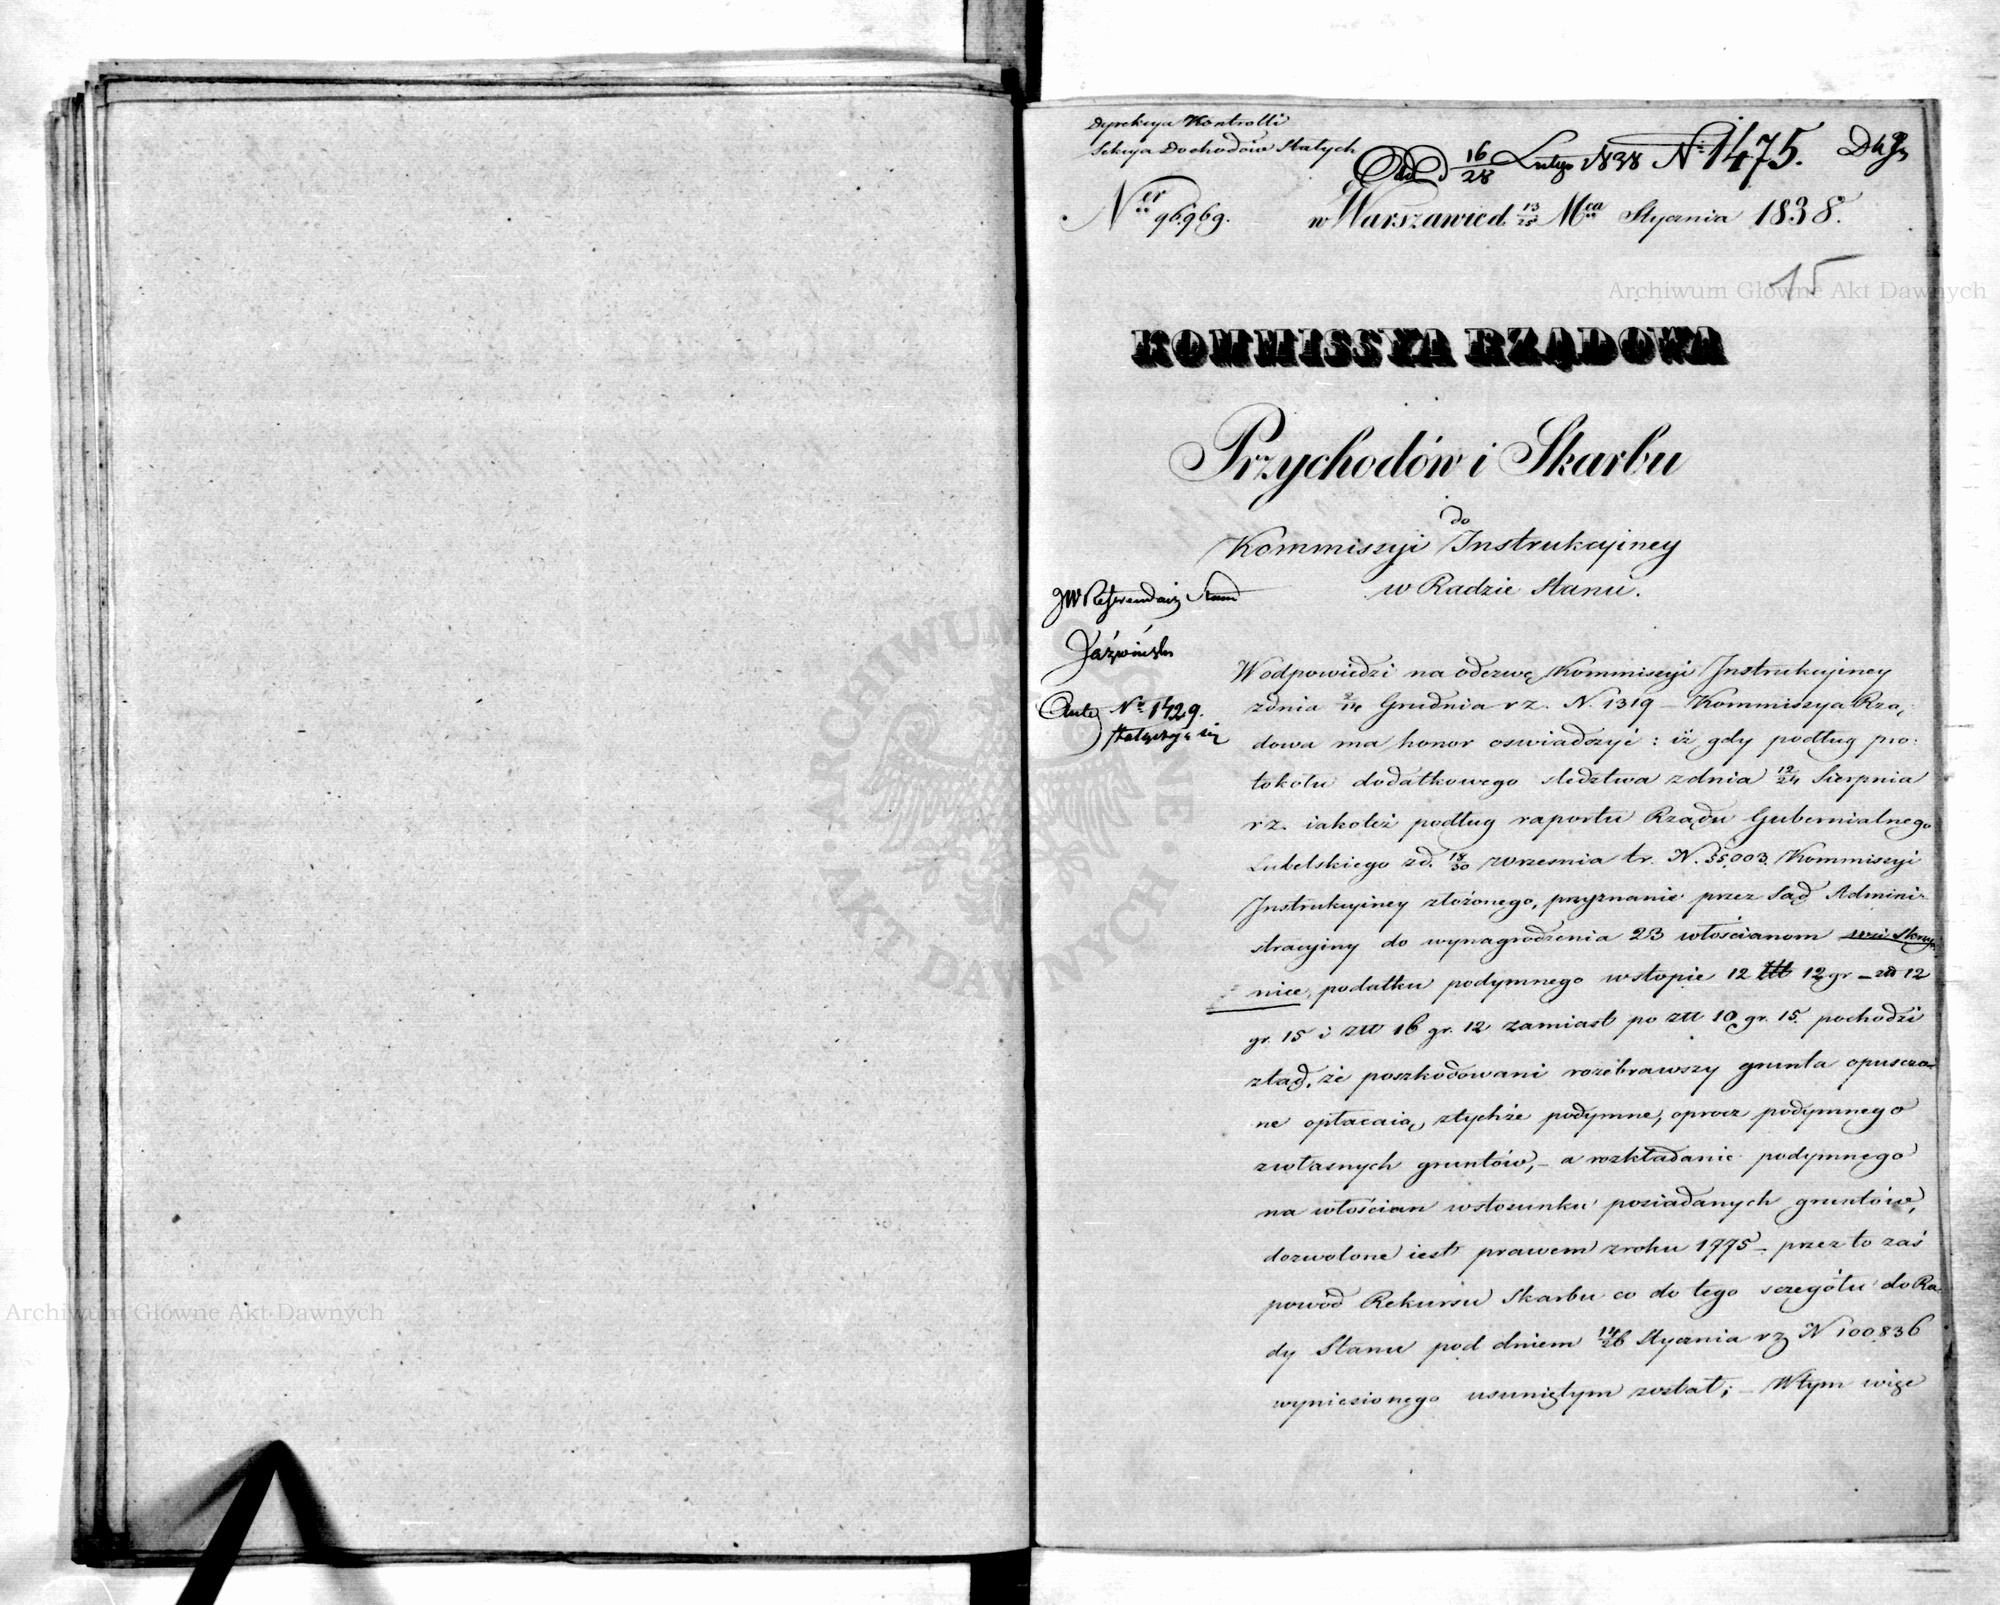 Dyrekcya Kontrolli
Sekcya Dochodów Stałych
Od. d 16/28 Lutego 1838 Nº 1475.
Ner 96969. w Warszawie d. 13/25 Mca Stycznia 1838.
15
KOMMISSYA RZĄDOWA
Przychodów i Skarbu
do
Kommiszyi Instrukcyiney
w Radzie Stanu.
JW Referendarz Stanu
Jaźwiński
Nº 1429.
W odpowiedzi na odezwę Kommiszyi Instrukcyiney
z dnia 2/14 Grudnia r z. N. 1319 – Kommiszya Rzą,
dowa ma honor oswiadczyć: iż gdy podług pro:
tokołu dodatkowego sledztwa z dnia 12/24 Sierpnia
r z. iakoteż podług raportu Rządu Gubernialnego
Lubelskiego z d. 18/30 września t r. N. 55,003. Kommiszyi
Instrukcyiney złożonego, przyznanie przez Sąd Admini-
stracyiny do wynagrodzenia 23 włościanom wsi Skrzy
nice, podatku podymnego w stopie 12 12 gr – złł 12
gr. 15 i złł 16 gr. 12 zamiast po złł 10 gr. 15. pochodzi
ztąd, że poszkodowani rozebrawszy grunta opuszczo
ne opłacaią z tychże podymne, oprocz podymnego
z własnych gruntów, – a rozkładanie podymnego
na włościan w stosunku posiadanych gruntów,
dozwolone iest prawem z roku 1775 – przez to zaś
powód Rekursu Skarbu co do tego sczegółu do Ra
dy Stanu pod dniem 14/26 Stycznia r z N 100,836
wyniesionego usuniętym został; – W tym więc
Archiwum Główne Akt Dawnych
Archiwum Główne Akt Dawnych
ARCHIWUM GŁÓWNE · AKT DAWNYCH ·